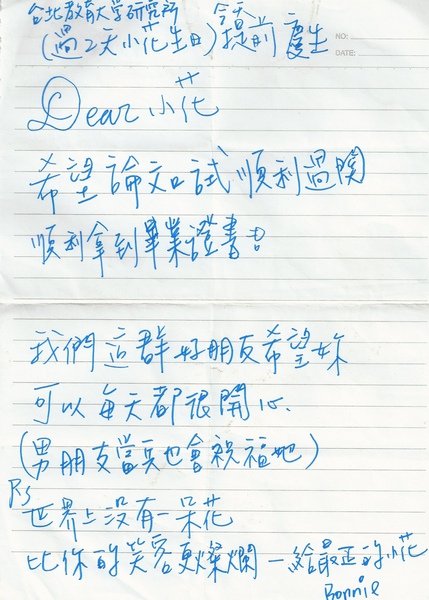 台北教育大学研究所
(過2天小花生日)今天提前慶生
NO:
DATE:
Dear 小花
希望論文口試順利過関
順利拿到畢業證書
我們這群好朋友希望妳
可以每天都很開心.
(男朋友當兵也會祝福她)
PS
世界上沒有一朵花
比你的笑容更燦爛—給最正的小花
Bonnie